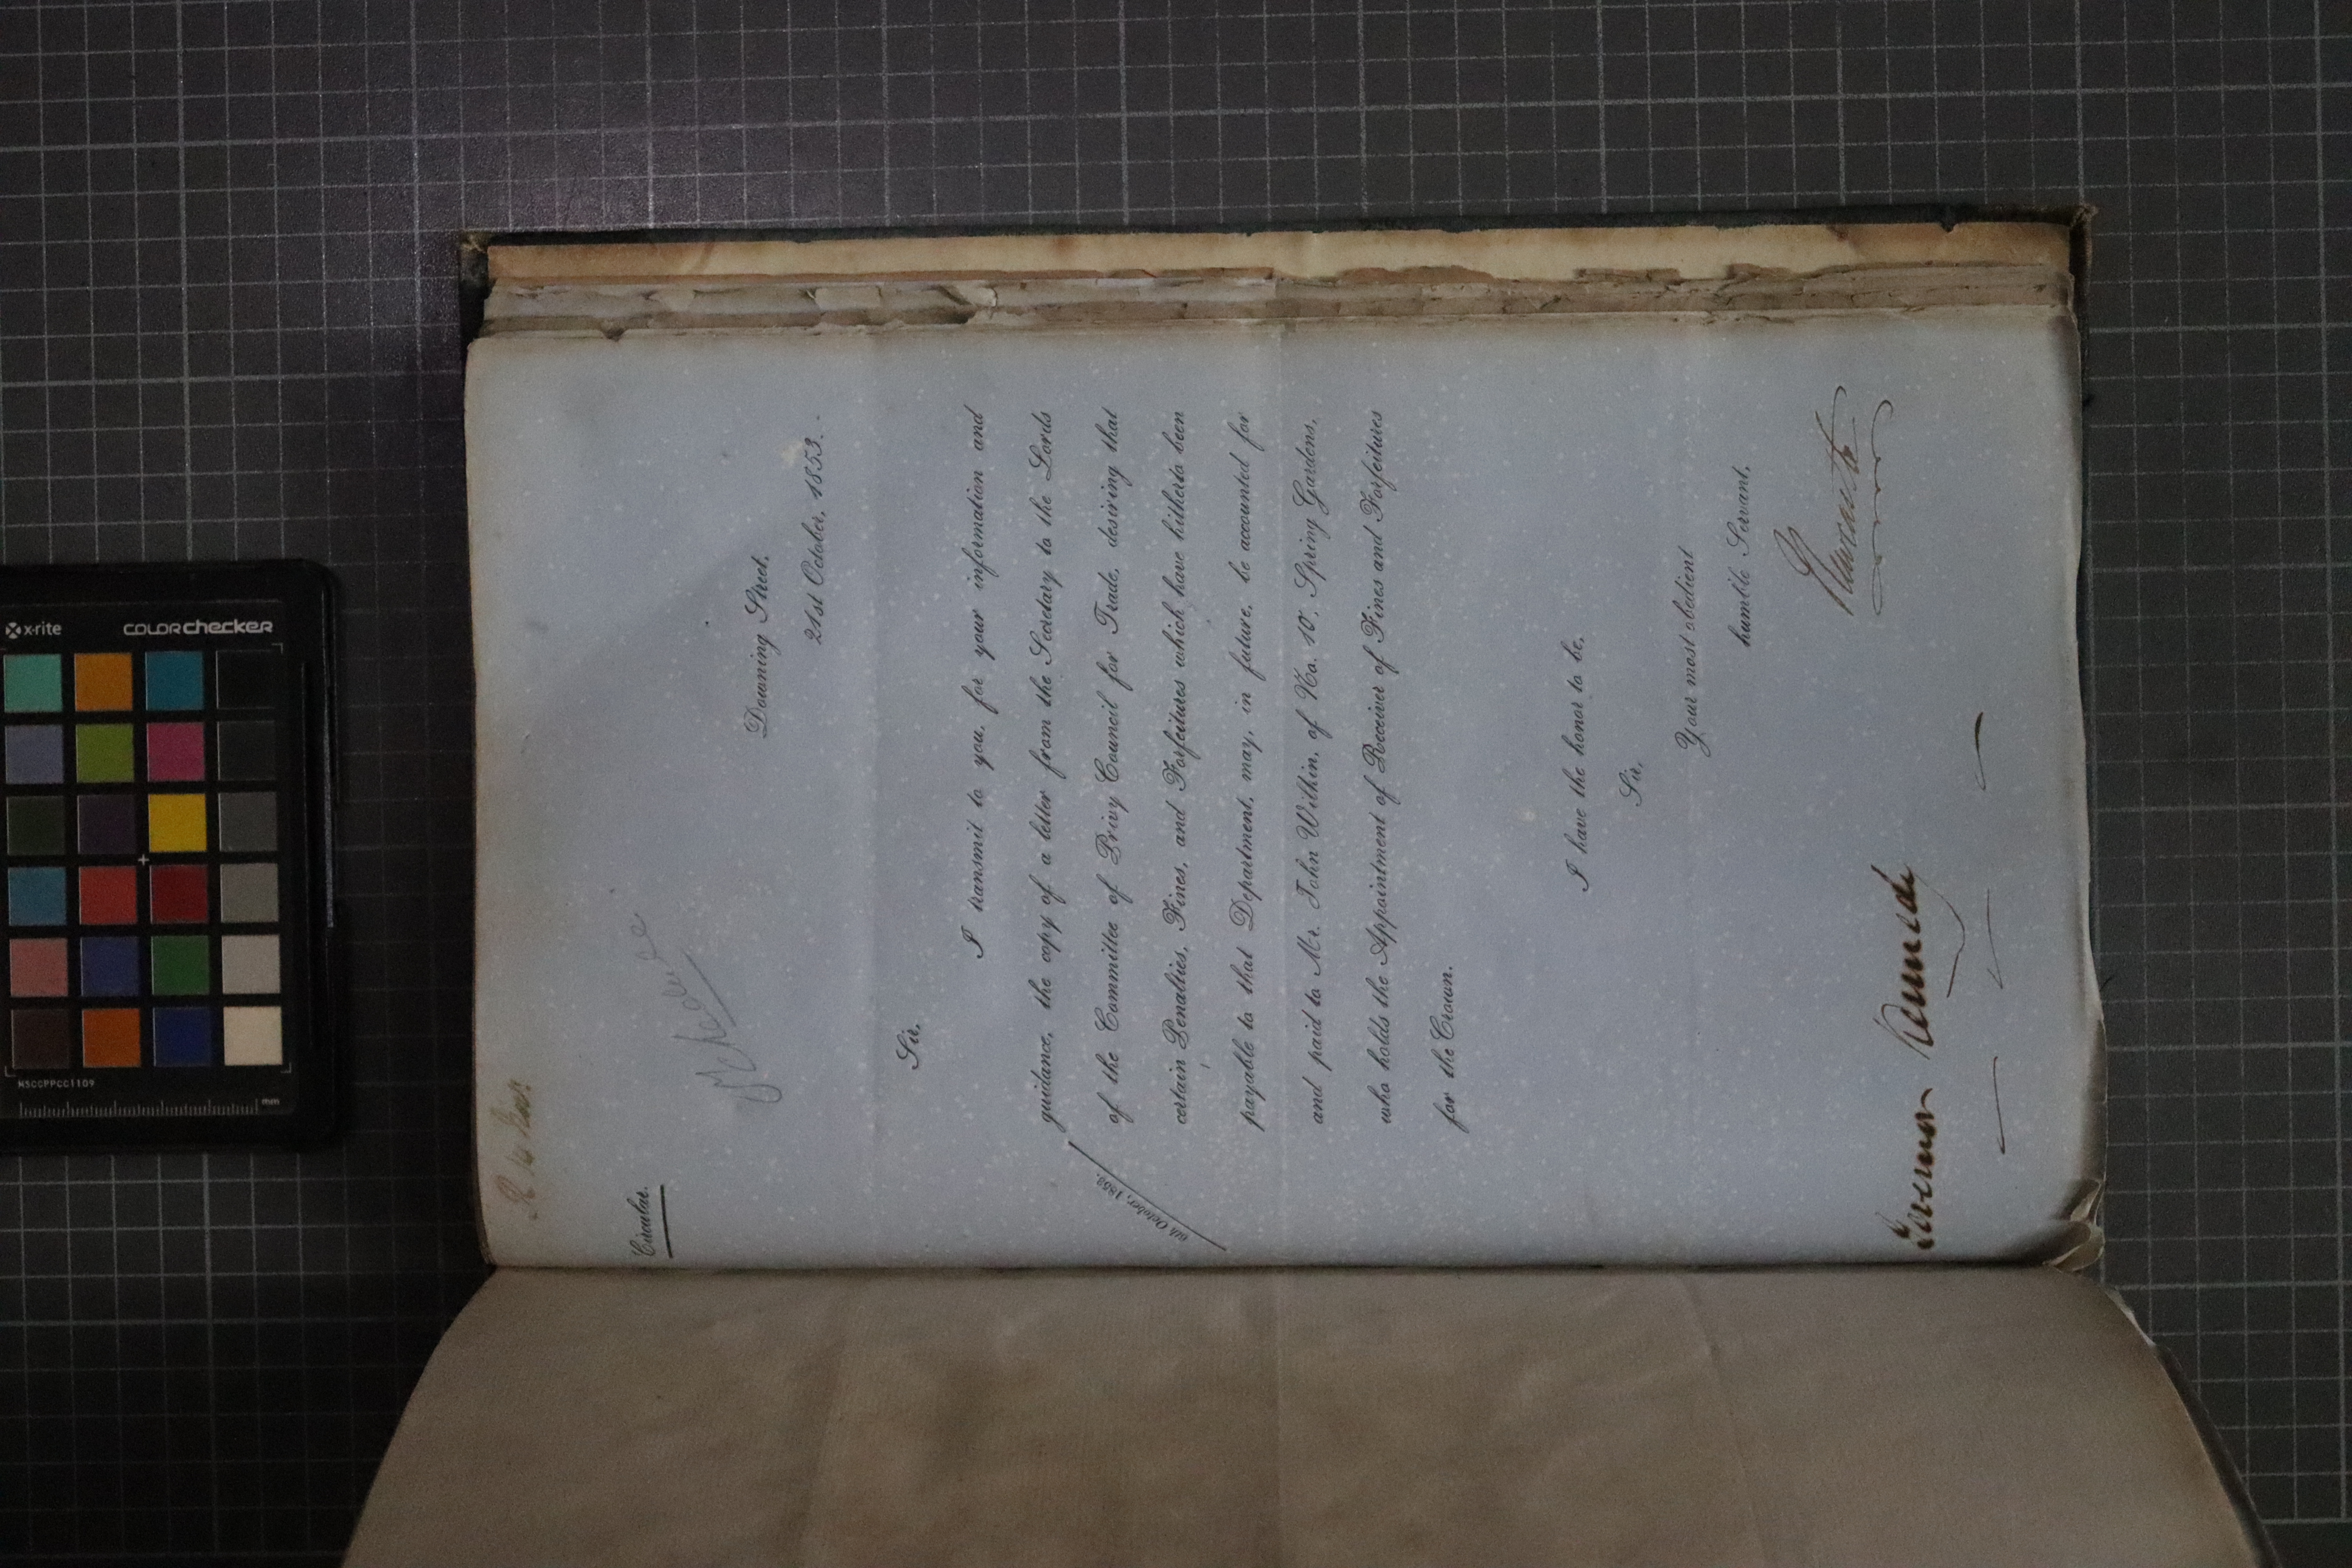 Circular.
Downing Street,
21st October, 1853.
Sir,
I transmit to you, for your information and
guidance, the copy of a letter from the Secretary to the Lords
6th October, 1853.
of the Committee of Privy Council for Trade, desiring that
certain Penalties, Fines, and Forfeitures which have hitherto been
payable to that Department, may, in future, be accounted for
and paid to Mr. John Wilkin, of No. 10, Spring Gardens,
who holds the Appointment of Receiver of Fines and Forfeitures
for the Crown.
I have the honor to be,
Sir,
Your most obedient
humble Servant,
Newcastle
Governor Kennedy
x-rite
colorchecker
MSCCPPCC1109
mm